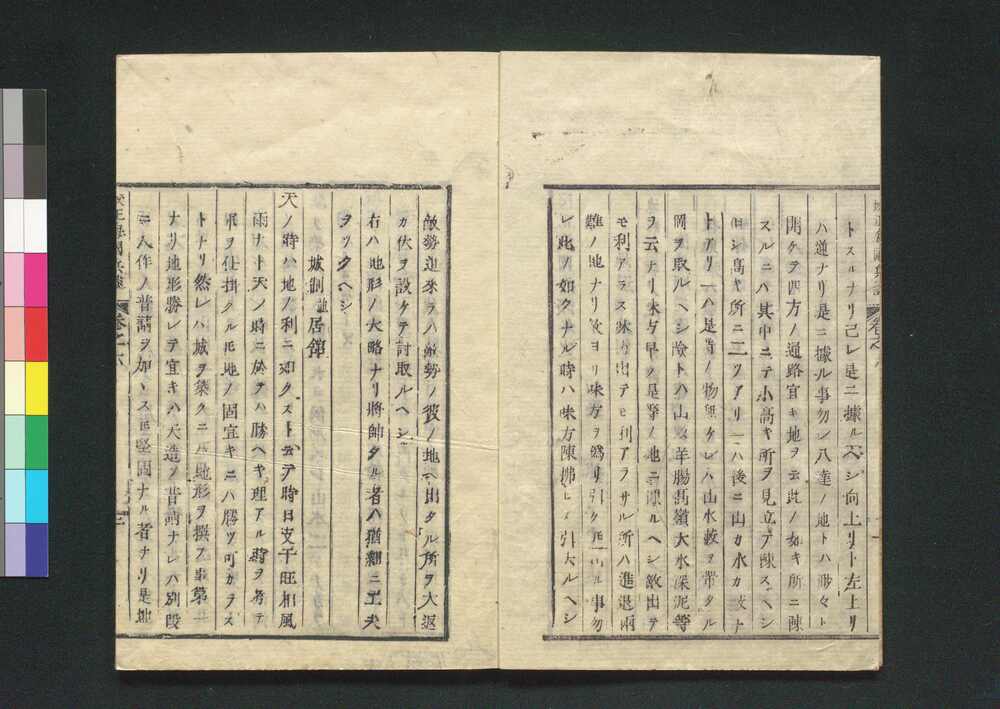 トスルナリ己レ是ニ據ルベシ向上リト左上リ
ハ道ナリ是ニ據ル事勿レ八達ノ地トハ
開ケテ四方ノ通路宜キ地ヲ云此ノ如キ所ニ陳
スルニハ其中ニテ小高キ所ヲ見立テ陳スヘシ
但シ高キ所ニ二ツアリ一ハ後ニ山カ水カ
トアリ一ハ是等ノ物無ケレハ山水藪ヲ帯タル
岡ヲ取ルヘシ險トハ山ハ羊腸高嶺大水深泥等
ヲ云ナリ味方早ク是等ノ地ニ據ルヘシ敵出テ
モ利アラス味方出テモ利アラサル所ハ進退兩
難ノ地ナリ敵ヨリ味方ヲ誘リ引クトモ出ル事勿
レ此ノ如クナル時ハ味方陳拂ヒシテ引去ルヘシ
敵勢追來ラハ敵勢ノ彼ノ地ヘ出タル所ヲ大返
カ伏ヲ設ケテ討取ルヘシ
右ハ地形ノ大略ナリ將帥タル者ハ猶細ニ工夫
ヲツクヘシ
城制 居舘
天ノ時ハ地ノ利ニ如クストテ時日支干旺相風
雨ナト天ノ時ニ於ヲハ勝ヘキ理アル時ヲ考テ
軍ヲ仕掛クルモ地ノ固宜キニハ勝ツ可カラス
トナリ然レハ城ヲ築クニハ地形ヲ撰フ事第一
ナリ地形勝レテ宜キハ天造ノ普請ナレハ別段
ニ人作ノ普請ヲ加ヘス𪜈堅固ナル者ナリ是地
卷之六